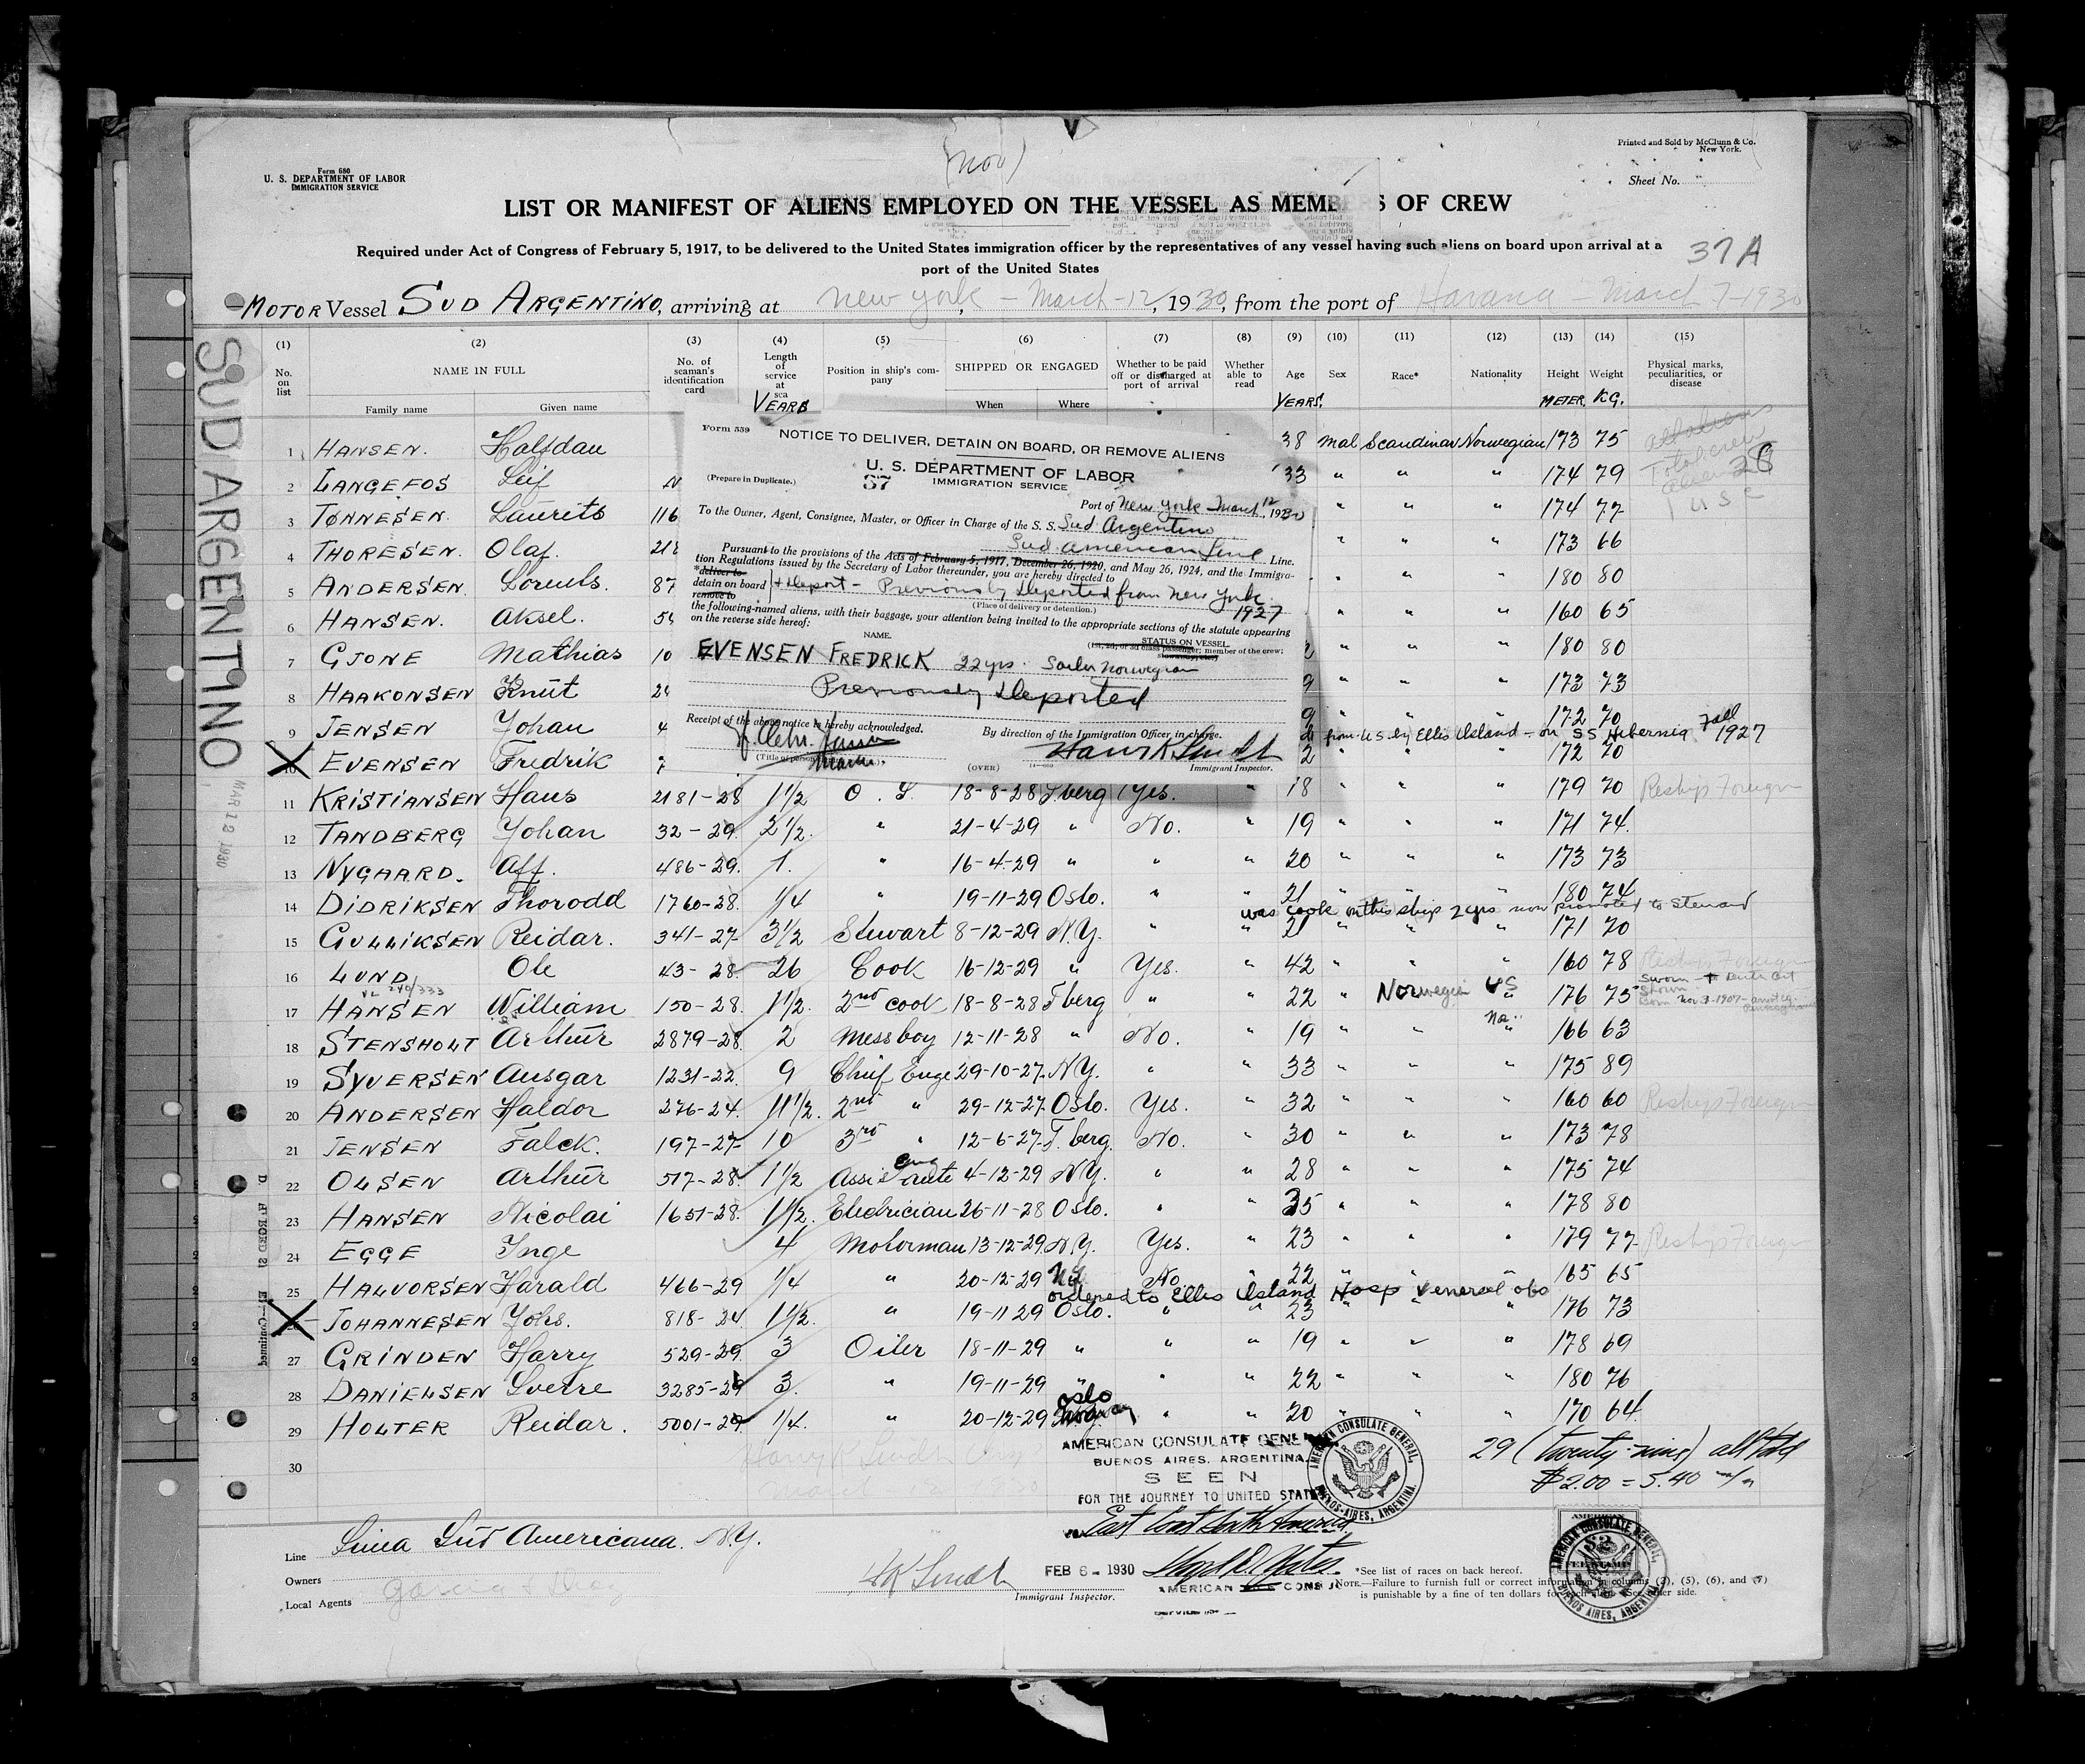 (nov)
Form 680
U. S. DEPARTMENT OF LABOR
IMMIGRATION SERVICE
Printed and Sold by McClunn & Co.
New York.
Sheet No.
LIST OR MANIFEST OF ALIENS EMPLOYED ON THE VESSEL AS MEMBERS OF CREW
Required under Act of Congress of February 5, 1917, to be delivered to the United States immigration officer by the representatives of any vessel having such aliens on board upon arrival at a
port of the United States
37A
MOTOR Vessel SUD ARGENTINO, arriving at New York, - March - 12, 1930, from the port of Havana - March 7-1930
SUD ARGENTINO MAR 12 1930
(1) (2) (3) (4) (5) (6) (7) (8) (9) (10) (11) (12) (13) (14) (15)
No. on list NAME IN FULL No. of seaman's identification card Length of service at sea Position in ship's company SHIPPED OR ENGAGED Whether to be paid off or discharged at port of arrival Whether able to read Age Sex Race* Nationality Height Weight Physical marks, peculiarities, or disease
Family name Given name YEARS When Where YEARS. METER KG.
1 HANSEN. Halfdan 38 Mal Scandinav Norwegian 173 75
2 LANGEFOS Leif N 33 " " " 174 79 Total crew 28
3 TØNNESEN. Laurits 116 " " " 174 77 1 USC
4 THORESEN. Olaf. 218 " " " 173 66
5 ANDERSEN. Loreuts. 87 " " " 180 80
6 HANSEN. Aksel. 54 " " " 160 65
7 GJONE Mathias 10 2 " " " 180 80
8 HAAKONSEN Knut 24 9 " " " 173 73
9 JENSEN Johan 4 9 " " " 172 70
from U.S. by Ellis Island - on SS Hibernia Fall 1927
X 10 EVENSEN Fredrik 7 2 " " " 172 70
Form 559
NOTICE TO DELIVER, DETAIN ON BOARD, OR REMOVE ALIENS
U. S. DEPARTMENT OF LABOR
(Prepare in Duplicate.) 57 IMMIGRATION SERVICE
Port of New York March 12, 1930
To the Owner, Agent, Consignee, Master, or Officer in Charge of the S. S. Sud Argentino
Sud American Line Line.
Pursuant to the provisions of the Acts of February 5, 1917, December 26, 1920, and May 26, 1924, and the Immigra-
tion Regulations issued by the Secretary of Labor thereunder, you are hereby directed to
*deliver to
detain on board + Deport - Previously Deported from New York
remove to (Place of delivery or detention.) 1927
the following-named aliens, with their baggage, your attention being invited to the appropriate sections of the statute appearing
on the reverse side hereof:
NAME. STATUS ON VESSEL
(1st, 2d, or 3d class passenger; member of the crew; stowaway, etc.)
EVENSEN FREDRICK 22 yrs. Sailor Norwegian
Previously Deported
Receipt of the above notice is hereby acknowledged. By direction of the Immigration Officer in charge.
Harry K Lindt
(Title of person Immigrant Inspector.
(OVER)
11 KRISTIANSEN Hans 2181-28 1½ O. S. 18-8-28 Tberg Yes. " 18 " " " 179 70 Reship Foreign
12 TANDBERG Johan 32-29. 2½. " 21-4-29 " No. " 19 " " " 171 74.
13 NYGAARD. Alf. 486-29. 1. " 16-4-29 " " " 20 " " " 173 73
14 DIDRIKSEN Thorodd 1760-28. ¼ " 19-11-29 Oslo. " " 21 " " " 180 74
was cook on this ship 2 yrs now promoted to Steward
15 GULLIKSEN Reidar. 341-27. 3½ Stewart 8-12-29 N.Y. " " 21 " " " 171 70
16 LUND Ole 43-28 26 Cook 16-12-29 " Yes. " 42 " " " 160 78 Reship Foreign
17 HANSEN William 150-28. 1½ 2nd cook 18-8-28 Tberg " " 22 " Norwegian US 176 75 Sworn Birth Cert Shown Born Nov. 3-1907
18 STENSHOLT Arthur 2879-28. 2 Messboy 12-11-28 " No. " 19 " " Nor. 166 63
19 SYVERSEN Ansgar 1231-22. 9 Chief Enge 29-10-27. N.Y. " " 33 " " " 175 89
20 ANDERSEN Haldor 276-24. 11½. 2nd " 29-12-27. Oslo. Yes. " 32 " " " 160 60 Reship Foreign
21 JENSEN Falck. 197-27. 10 3rd " 12-6-27. T.berg. No. " 30 " " " 173 78
22 OLSEN Arthur 517-28. 1½ Assistante eng 4-12-29 N.Y. " " 28 " " " 175 74
23 HANSEN Nicolai 1651-28. 1½. Electrician 26-11-28 Oslo. " " 35 " " " 178 80
24 EGGE Inge 4 Motorman 13-12-29 N.Y. Yes. " 23 " " " 179 77 Reship Foreign
25 HALVORSEN Harald 466-29 ¼ " 20-12-29 N.Y. No " 22 " " " 165 65
ordered to Ellis Island Hosp Venereal obs
X JOHANNESEN Johs. 818-24 1½. " 19-11 29 Oslo. " " 23 " " " 176 73
27 GRINDEN Harry 529-29. 3 Oiler 18-11-29 " " " 19 " " " 178 69
28 DANIELSEN Sverre 3285-29 3. " 19-11-29 " " " 22 " " " 180 76
29 HOLTER Reidar. 5001-29. ¼. " 20-12-29 Oslo Norway " " 20 " " " 170 64.
30
Harry K Lindt
March 12 1930
AMERICAN CONSULATE GENERAL
BUENOS AIRES, ARGENTINA.
SEEN
FOR THE JOURNEY TO UNITED STATES
via East Coast South America
AMERICAN CONSULATE GENERAL, BUENOS-AIRES, ARGENTINA.
29 (twenty-nine) all told
$2.00 = 5.40 m/n
FEB 6 - 1930 Lloyd D. Yates.
AMERICAN VICE CONSUL
Line Linea Sud Americana. N.Y.
Owners
Local Agents Garcia & Diaz
HK Lindt
Immigrant Inspector.
*See list of races on back hereof.
NOTE.—Failure to furnish full or correct information in columns (2), (5), (6), and (7)
is punishable by a fine of ten dollars for each alien. See other side.
AMERICAN CONSULATE GENERAL, BUENOS AIRES, ARGENTINA